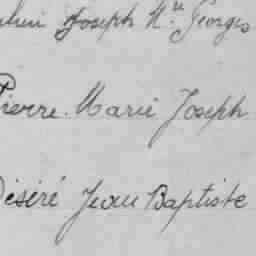 Joseph M.ie Georges
Pierre Marie Joseph
Désiré Jean Baptiste